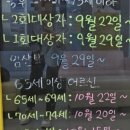 └2회대상자: 9월22일~
└1회대상자: 9월29일~
임산부 9월29일~
65세이상 어르신
└65세~69세: 10월 22일~
└70세~74세: 10월20일~